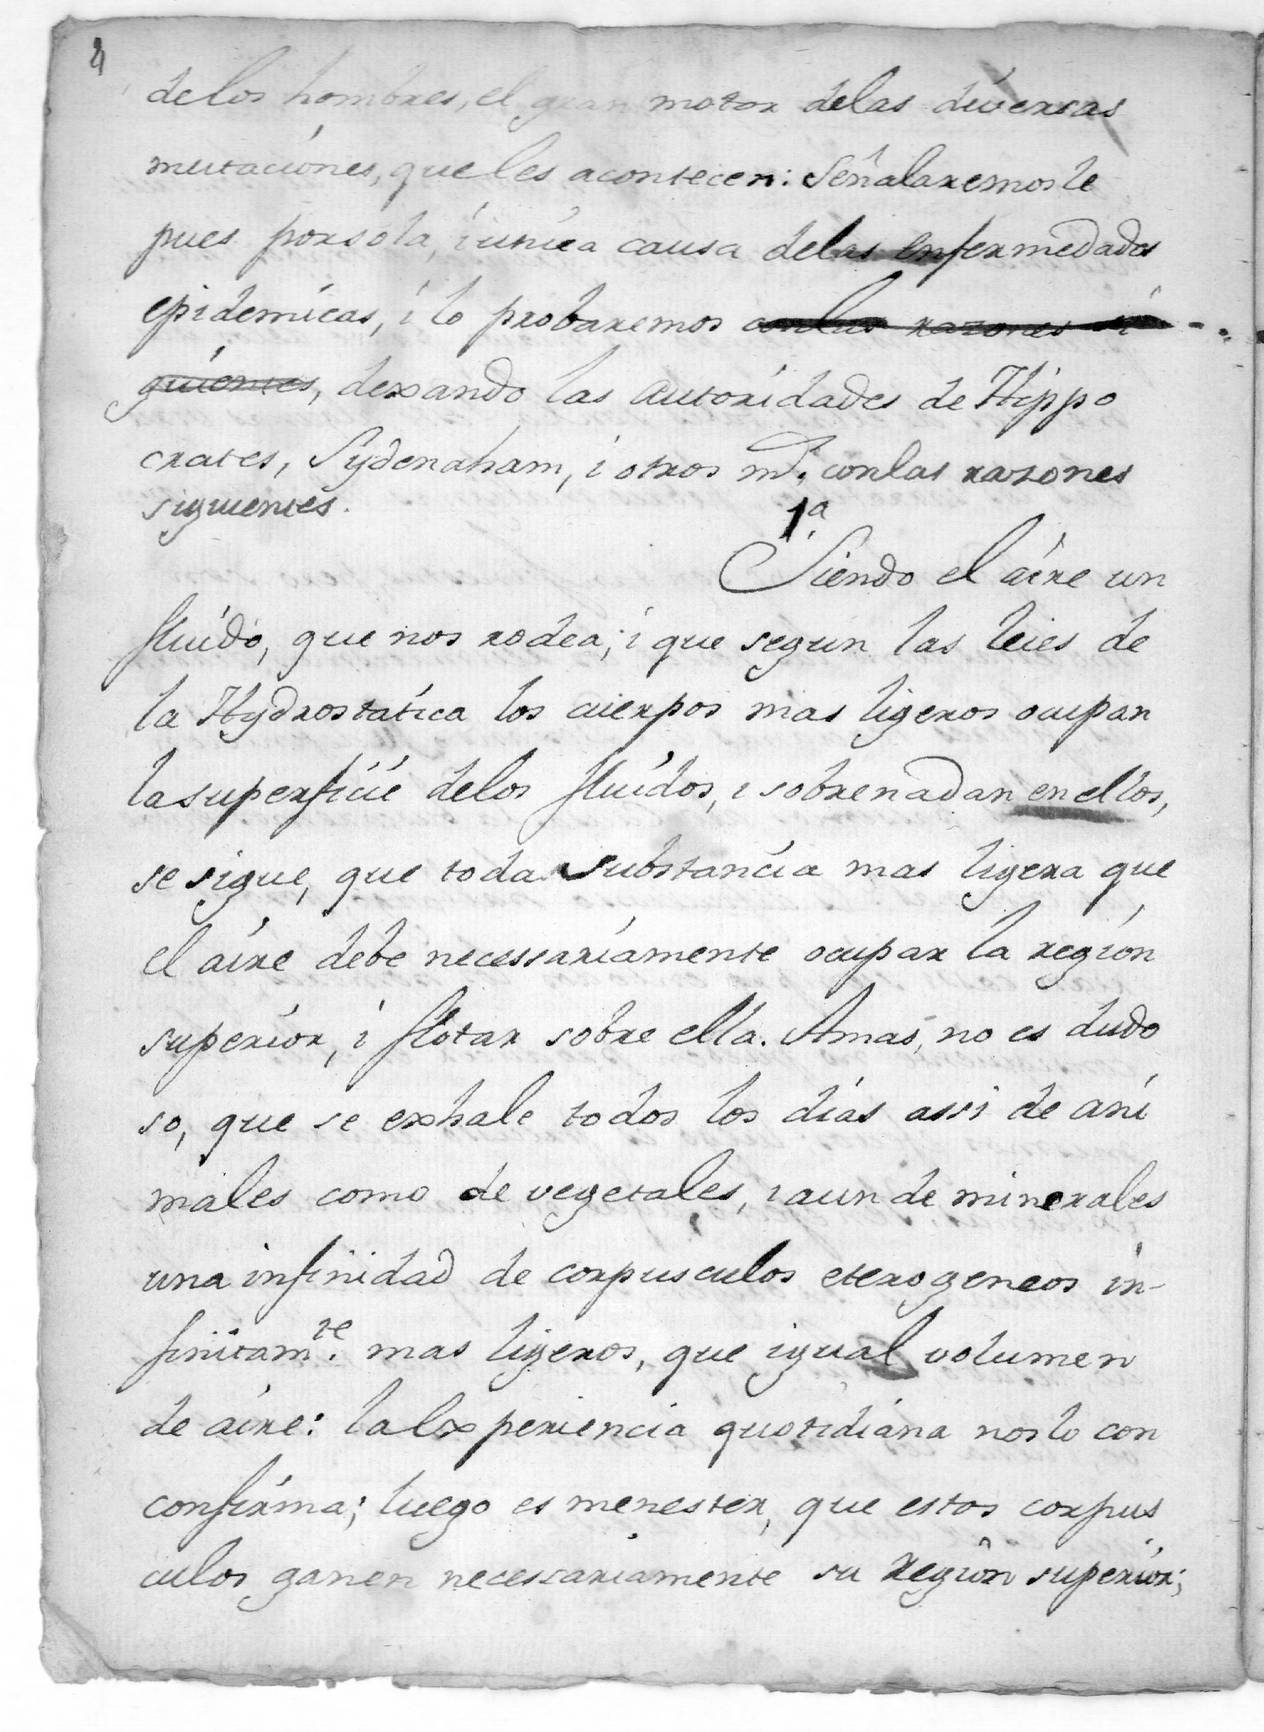 4
delos hombres, el gran motor delas diversas
mutaciónes, que les acontecen: Señalaremosle
pues porsola, i unica causa delas enfermedades
epidemicas, i lo probaremos conlas razones si
guientes, dexando las autoridades de Hippo
crates, Sydenaham, i otros ms. conlas razones
siguientes.
1ª
Siendo el aire un
fluido, que nos rodea; i que segun las leies de
la Hydrostatica los cuerpos mas ligeros ocupan
lasuperficie delos fluidos, i sobrenadan enellos,
se sigue, que toda substancia mas ligera que
el aire debe necessariamente ocupar la región
superior, i flotar sobre ella. Amas, no es dudo
so, que se exhale todos los dias assi de ani
males como de vegetales, i aun de minerales
una infinidad de corpusculos eterogeneos in-
finitam.te mas ligeros, que igual volumen
de aire: la experiencia quotidiana noslo con
confirma; luego es menester, que estos corpus
culos ganen necessariamente su región superior;